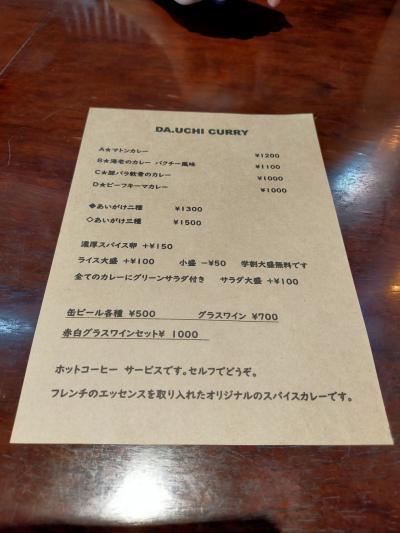 DA.UCHI CURRY
A★マトンカレー ¥1200
B★海老のカレー パクチー風味 ¥1100
C★豚バラ軟骨のカレー ¥1000
D★ビーフキーマカレー ¥1000
◆あいがけ二種 ¥1300
◇あいがけ三種 ¥1500
濃厚スパイス卵 +¥150
ライス大盛 +¥100 小盛 -¥50 学割大盛無料です
全てのカレーにグリーンサラダ付き サラダ大盛 +¥100
缶ビール各種 ¥500 グラスワイン ¥700
赤白グラスワインセット¥ 1000
ホットコーヒー サービスです。セルフでどうぞ。
フレンチのエッセンスを取り入れたオリジナルのスパイスカレーです。